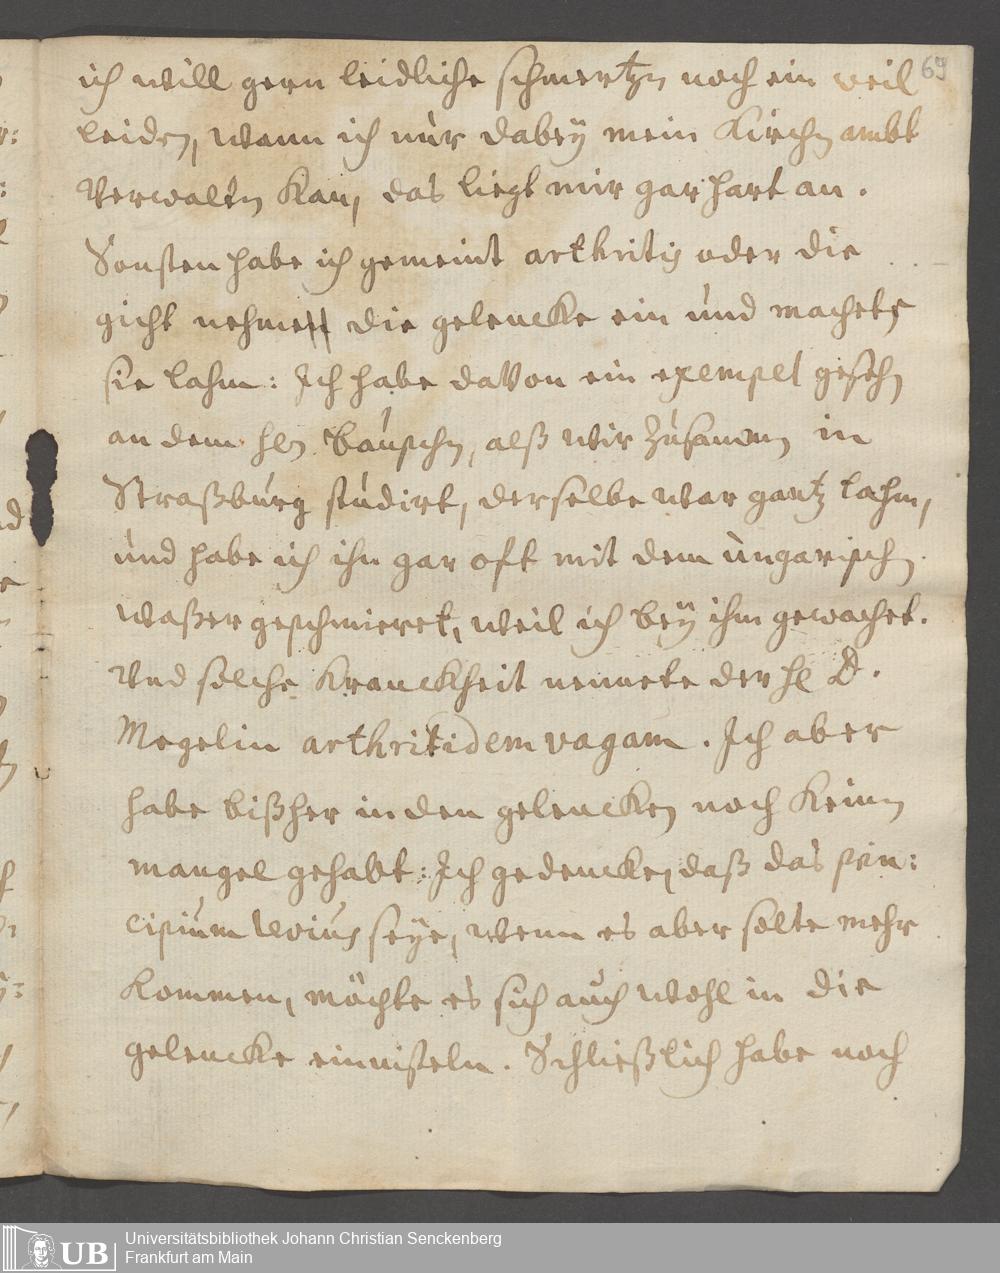 69
ich will gern leidliche schmertzen noch ein weil
leiden, wann ich nur dabey mein Kirchen ambt
Verwalten Kan, das liegt mir gar hart an.
Sonsten habe ich gemeint arthritis oder die
gicht nehme die gelencke ein und machete
sie lahm: Ich habe davon ein exempel gesehen
an dem hen Bauschen, alß wir zusamen in
Straßburg studirt, derselbe war gantz lahm,
und habe ich ihn gar oft mit dem ungarischen
waßer geschmieret, weil ich bey ihm gewachet.
Und solche Kranckheit nennete der H D.
Megelin arthritidem vagam. Ich aber
habe bißher in den gelencken noch Keinen
mangel gehabt: Ich gedencke, daß das prin:
cipium seye, wenn es aber solte mehr
Kommen, möchte es sich auch wohl in die
gelencke einnisteln. Schließlich habe noch
UB
Universitätsbibliothek Johann Christian Senckenberg
Frankfurt am Main